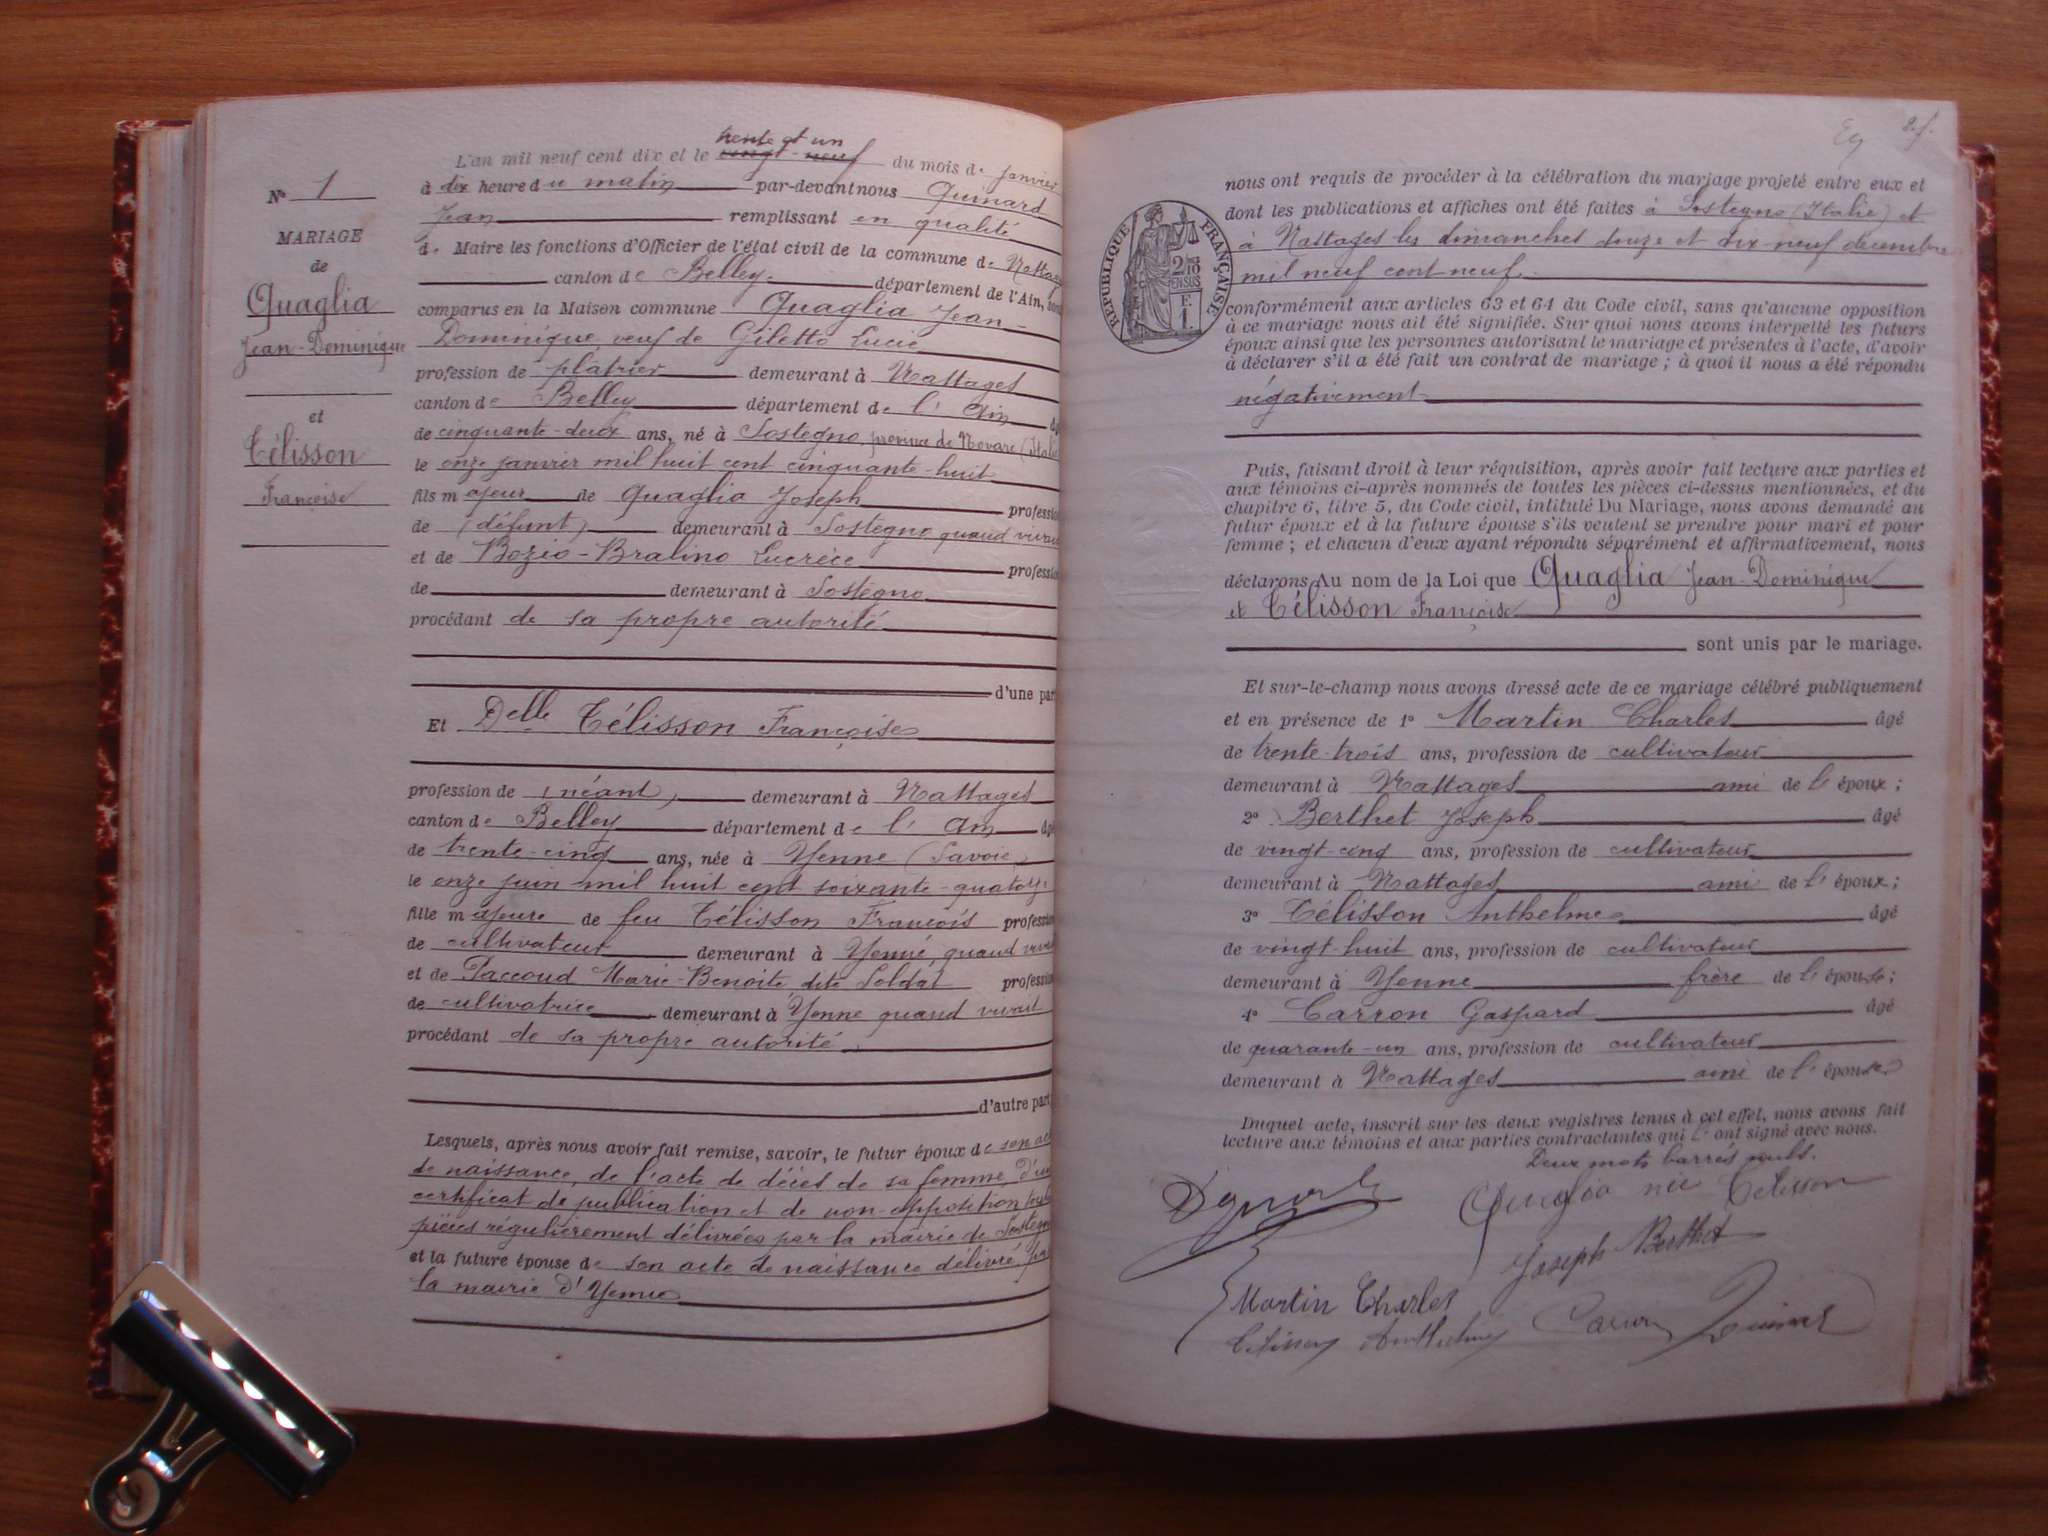 L'an mil neuf cent dix et le trente et un vingt-neuf du mois de janvier
Nº 1
à dix heure du matin par-devant nous Guinard
Jean remplissant en qualité
MARIAGE
de
de Maire les fonctions d'Officier de l'état civil de la commune de Nattages
canton de Belley département de l'Ain, sont
Quaglia
Jean-Dominique
et
Télisson
Françoise
comparus en la Maison commune Quaglia Jean-
Dominique veuf de Giletto Lucie
profession de platrier demeurant à Nattages
canton de Belley département de l'Ain âgé
de cinquante-deux ans, né à Sostegno, province de Novare (Italie)
le onze janvier mil huit cent cinquante-huit
fils majeur de Quaglia Joseph profession
de (défunt) demeurant à Sostegno quand vivait
et de Bozio-Bralino Lucrèce profession
de demeurant à Sostegno
procédant de sa propre autorité
d'une part
Et Delle Télisson Françoise
profession de (néant) demeurant à Nattages
canton de Belley département de l'Ain âgé
de trente-cinq ans, née à Yenne (Savoie)
le onze juin mil huit cent soixante-quatorze
fille majeure de feu Télisson François profession
de cultivateur demeurant à Yenne, quand vivait
et de Paccoud Marie-Benoite dite Soldat profession
de cultivatrice demeurant à Yenne quand vivait
procédant de sa propre autorité
d'autre part
Lesquels, après nous avoir fait remise, savoir, le futur époux de son acte
de naissance, de l'acte de décès de sa femme, d'un
certificat de publication et de non-opposition
pièces régulièrement délivrées par la mairie de Sostegno
et la future épouse de son acte de naissance délivré par
la mairie d'Yenne
nous ont requis de procéder à la célébration du mariage projeté entre eux et
dont les publications et affiches ont été faites à Sostegno (Italie) et
à Nattages les dimanches douze et dix-neuf décembre
mil neuf cent neuf
RÉPUBLIQUE FRANÇAISE
2/10 EN SUS
1 F.
conformément aux articles 63 et 64 du Code civil, sans qu'aucune opposition
à ce mariage nous ait été signifiée. Sur quoi nous avons interpellé les futurs
époux ainsi que les personnes autorisant le mariage et présentes à l'acte, d'avoir
à déclarer s'il a été fait un contrat de mariage ; à quoi il nous a été répondu
négativement
Puis, faisant droit à leur réquisition, après avoir fait lecture aux parties et
aux témoins ci-après nommés de toutes les pièces ci-dessus mentionnées, et du
chapitre 6, titre 5, du Code civil, intitulé Du Mariage, nous avons demandé au
futur époux et à la future épouse s'ils veulent se prendre pour mari et pour
femme ; et chacun d'eux ayant répondu séparément et affirmativement, nous
déclarons Au nom de la Loi que Quaglia Jean-Dominique
et Télisson Françoise
sont unis par le mariage.
Et sur-le-champ nous avons dressé acte de ce mariage célébré publiquement
et en présence de 1º Martin Charles âgé
de trente-trois ans, profession de cultivateur
demeurant à Nattages ami de l'époux ;
2º Berthet Joseph âgé
de vingt-cinq ans, profession de cultivateur
demeurant à Nattages ami de l'époux ;
3º Télisson Anthelme âgé
de vingt-huit ans, profession de cultivateur
demeurant à Yenne frère de l'épouse ;
4º Carron Gaspard âgé
de quarante-un ans, profession de cultivateur
demeurant à Nattages ami de l'épouse
Duquel acte, inscrit sur les deux registres tenus à cet effet, nous avons fait
lecture aux témoins et aux parties contractantes qui l'ont signé avec nous.
Deux mots barrés nuls.
Quaglia née Télisson
Joseph Berthet
Martin Charles
Télisson Anthelme Carron Guinard